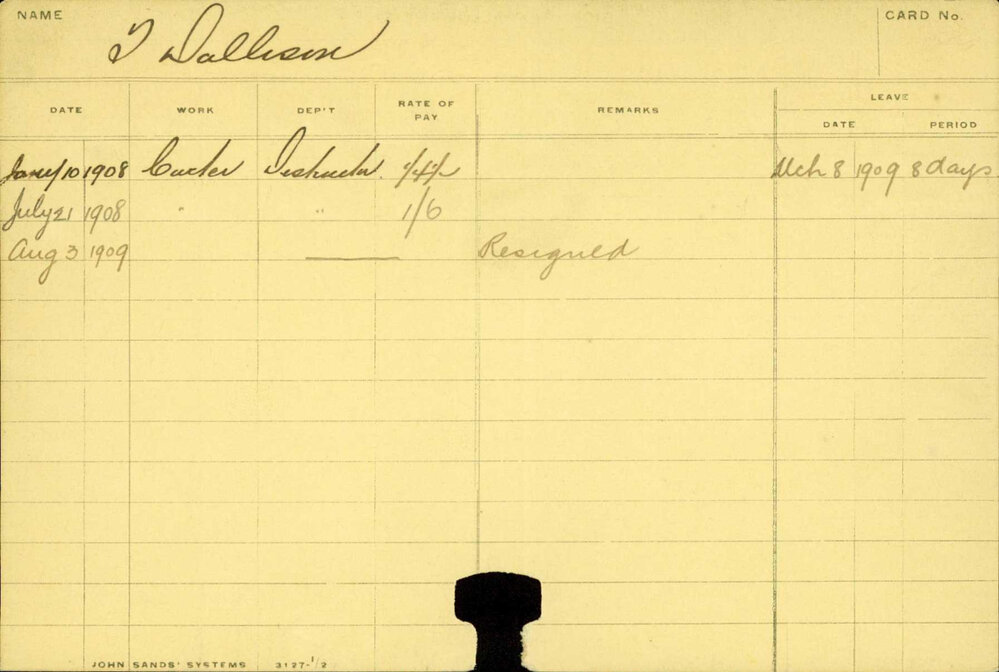 NAME
CARD No.
T Dallison
DATE WORK DEP'T RATE OF PAY REMARKS LEAVE
DATE PERIOD
Jany 10 1908 Carter Destructor 1/4½ Mch 8 1909 8 days
July 21 1908 " " 1/6
Aug 3 1909 Resigned
JOHN SANDS' SYSTEMS 3127-1/2